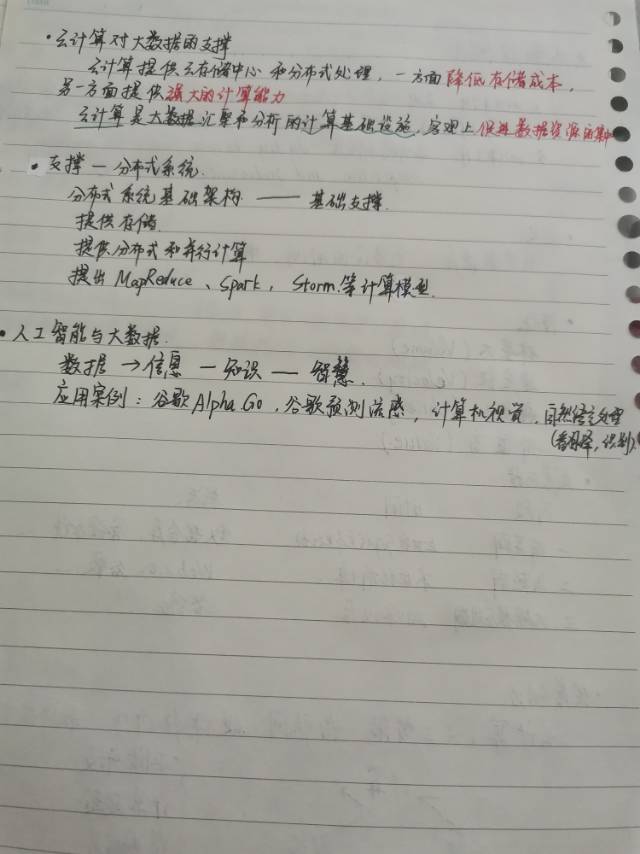 ·云计算对大数据的支撑
云计算提供云存储中心和分布式处理，一方面降低存储成本，
另一方面提供强大的计算能力
云计算是大数据汇聚和分析的计算基础设施，客观上促进数据资源的集中
·支撑—分布式系统
分布式系统基础架构——基础支撑
提供存储
提供分布式和并行计算
提出MapReduce、Spark，Storm等计算模型
·人工智能与大数据
数据→信息—知识—智慧
应用案例：谷歌AlphaGo，谷歌预测流感，计算机视觉，自然语言处理
(看图译，识别)